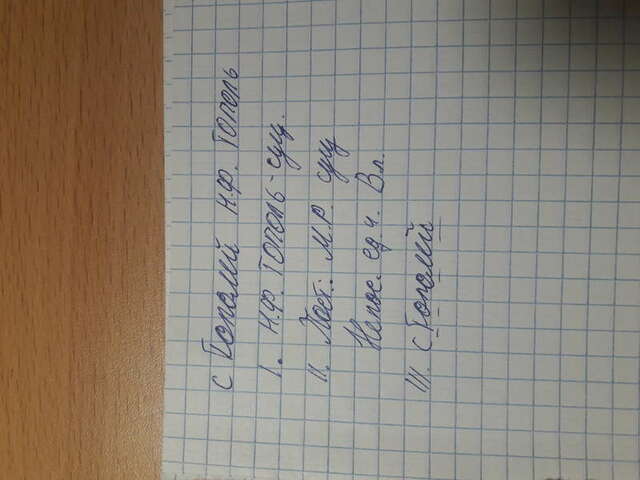 с Тополий н.ф. Тополь
I. н.ф. Тополь - сущ.
II. Пост: М.Р. сущ
Непос. ед ч. В.п.
III. с Тополий